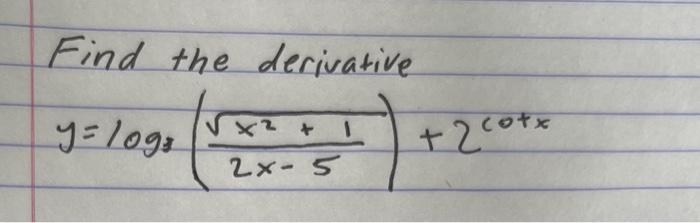 Find the derivative
y = log₃ (√(x² + 1) / (2x - 5)) + 2^(cot x)